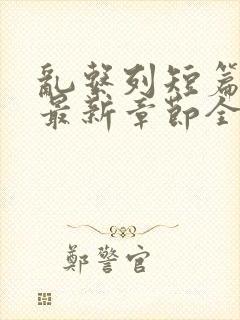 乱系列短篇
最新章節全
鄭警官